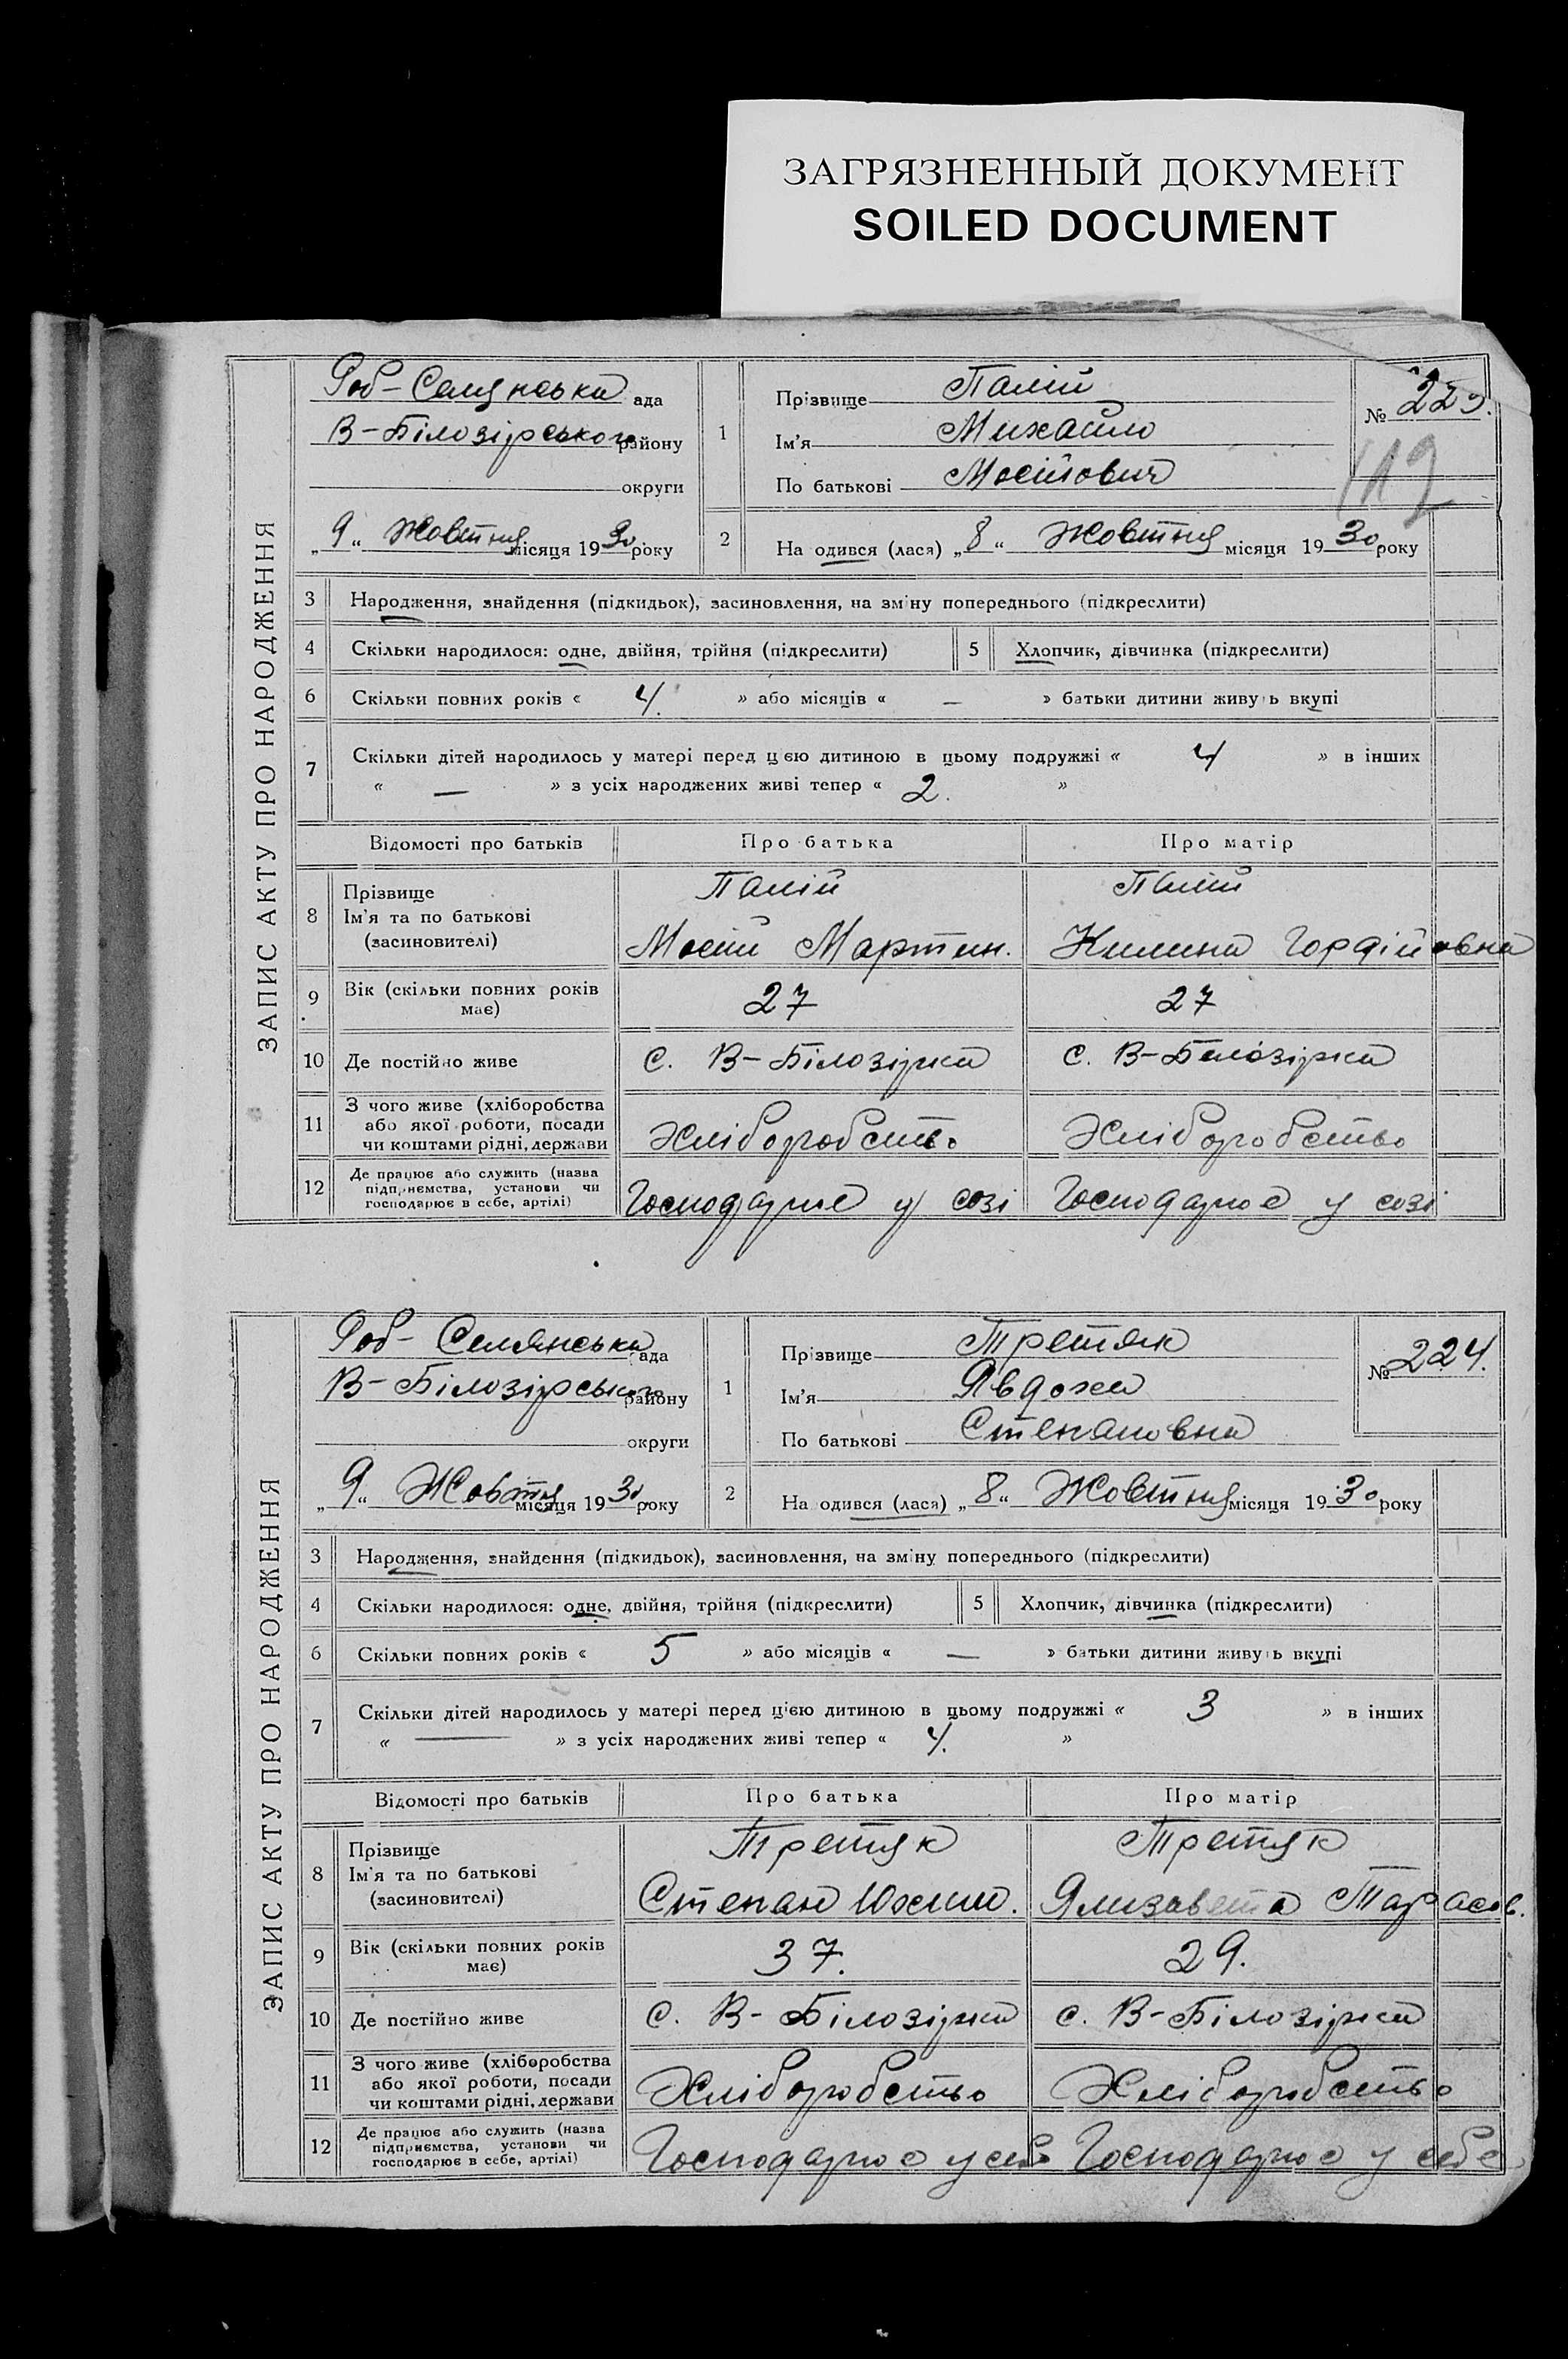 ЗАГРЯЗНЕННЫЙ ДОКУМЕНТ
SOILED DOCUMENT
ЗАПИС АКТУ ПРО НАРОДЖЕННЯ
Роб-Селянська ада
В-Білозірського району
округи
„9“ Жовтня місяця 1930 року
1
Прізвище Палій
Ім'я Михайло
По батькові Мосійович
№ 223.
119
2 На одився (лася) „8“ Жовтня місяця 1930 року
3 Народження, знайдення (підкидьок), засиновлення, на зміну попереднього (підкреслити)
4 Скільки народилося: одне, двійня, трійня (підкреслити) 5 Хлопчик, дівчинка (підкреслити)
6 Скільки повних років « 4. » або місяців « — » батьки дитини живуть вкупі
7 Скільки дітей народилось у матері перед цією дитиною в цьому подружжі « 4 » в інших
« — » з усіх народжених живі тепер « 2. »
Відомості про батьків Про батька Про матір
8 Прізвище Ім'я та по батькові (засиновителі) Палій Палій
Мосій Мартин. Килина Гордійовна
9 Вік (скільки повних років має) 27 27
10 Де постійно живе с. В-Білозірка с. В-Білозірка
11 З чого живе (хліборобства або якої роботи, посади чи коштами рідні, держави Хліборобство Хліборобство
12 Де працює або служить (назва підприємства, установи чи господарює в себе, артілі) Господарює у созі Господарює у созі
ЗАПИС АКТУ ПРО НАРОДЖЕННЯ
Роб-Селянська ада
В-Білозірського району
округи
„9“ Жовтня місяця 1930 року
1
Прізвище Третяк
Ім'я Явдоха
По батькові Степановна
№ 224.
2 На одився (лася) „8“ Жовтня місяця 1930 року
3 Народження, знайдення (підкидьок), засиновлення, на зміну попереднього (підкреслити)
4 Скільки народилося: одне, двійня, трійня (підкреслити) 5 Хлопчик, дівчинка (підкреслити)
6 Скільки повних років « 5 » або місяців « — » батьки дитини живуть вкупі
7 Скільки дітей народилось у матері перед цією дитиною в цьому подружжі « 3 » в інших
« — » з усіх народжених живі тепер « 4. »
Відомості про батьків Про батька Про матір
8 Прізвище Ім'я та по батькові (засиновителі) Третяк Третяк
Степан Юхим. Ялизавета Тарасов.
9 Вік (скільки повних років має) 37. 29.
10 Де постійно живе с. В-Білозірка с. В-Білозірка
11 З чого живе (хліборобства або якої роботи, посади чи коштами рідні, держави Хліборобство Хліборобство
12 Де працює або служить (назва підприємства, установи чи господарює в себе, артілі) Господарює у себе Господарює у себе